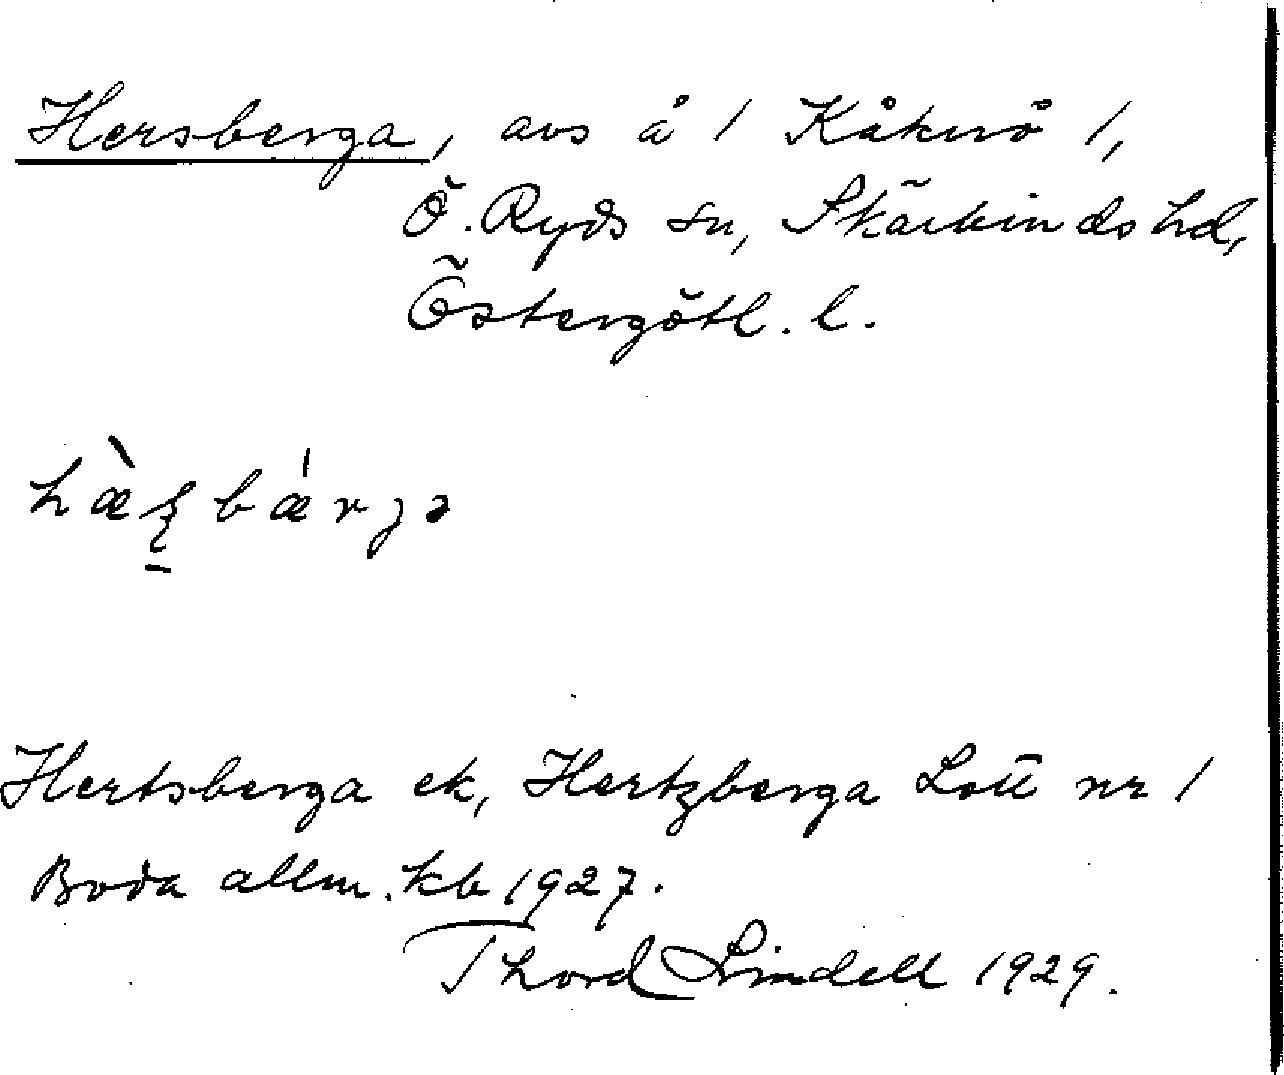 Hersberga, avs å 1 Kåknö 1,
Ö. Ryds sn, Skärkinds hd,
Östergötl. l.
hæ̀ʂbærjə
Hertsberga ek, Hertzberga Lott nr 1
Boda allm. kb 1927.
Thord Lindell 1929.